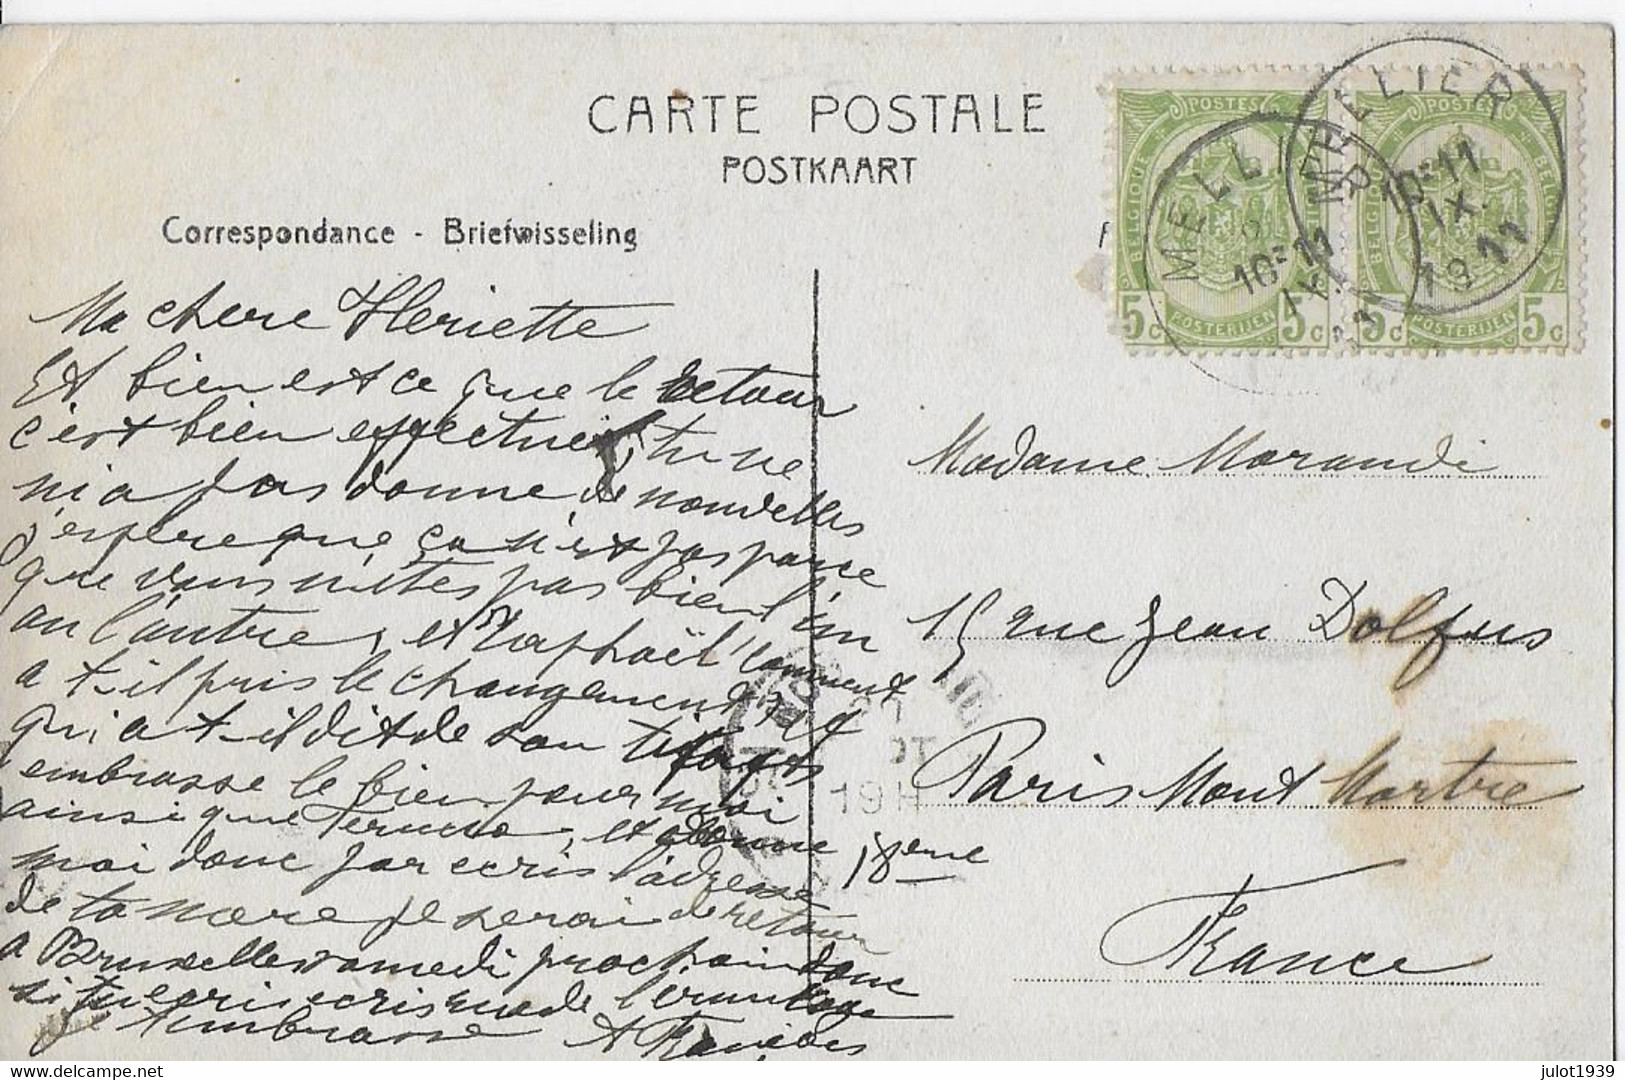 CARTE POSTALE
POSTKAART
Correspondance - Briefwisseling
POSTES
BELGIQUE
5c POSTERIJEN 5c
POSTES
BELGIQUE BELGIE
5c POSTERIJEN 5c
MELLIER
10-11
IX
MELLIER
10-11
IX.
1911
Ma chere Heriette
Et bien est ce que le retour
c'est bien effectué, tu ne
m'a pas donne de nouvelles
j'espere que ça n'est pas parce
que vous n'êtes pas bien l'un
ou l'autre, et Raphaël comment
a t-il pris le changement
qu'a t-il dit de son
embrasse le bien pour moi
ainsi que et donne
moi donc par ecris l'adresse
de ta mere je serai de retour
a Bruxelles samedi prochain donc
si tu ecris ecris rue de l'ermitage
je t'embrasse
19 H
Madame Morandi
15 rue Jean Dolfus
Paris Mont Martre
18eme
France
julot1939